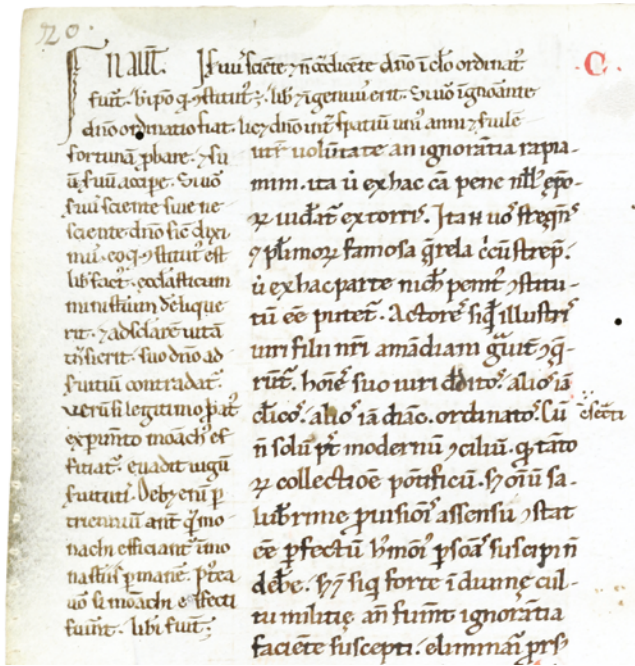 720.
IN AUT̃. Si fuu' sciẽte ⁊ ñ ↄ̃dicẽte dño ĩ cło ordinat᷒
fuit. lib̃ ⁊ ĩgenuu᷒ erit. Si uo ĩgnorante
dño ordinatio fiat. licꝫ dño int̃ spatiũ uni᷒ anni ⁊ fuilẽ
fortunã ꝓbare. ⁊ su
ũ fuũ accipe. Si uo
fuu᷒ sciente siue ne
sciente dño sic̃ dixi
mu᷒. eo qͩ ↄstitut᷒ est
lib̃ fact᷒. ecclasticum
ministium delique
rit. ⁊ ad sclarẽ uitã
tñsierit. suo dño ad
fuitiũ contradat᷑.
Verũ si legitimo
ex punto moach᷒ ef
ficiat᷑. euadit iugũ
fuituti᷒. Debꝫ enĩ ꝑ
trienniũ antͣ ꝙͣ mo
nachi efficiant᷑ ĩ mo
nastiis ꝑmane. Pͦtea
uo si moachi effecti
fuint. libi fuit;
C.
utͬ uoluntate an ignorãtia rapia-
mini. ita ũ ex hac cã pene nłł᷒ ep̃o-
ꝝ uideat᷑ extorris. Ita ñ nos freqñs
⁊ plimoꝝ famosa q̃rela c̃cũstrep̃.
ũ ex hac parte nich̃ penit᷒ ↄstitu-
tũ ee putet᷑. Actores siqͥ illustris
uiri filii nr̃i amãdiam ↄq̃-
rũt. hoies suo iuri dd̃itos. alios iã
clicos. alios iã diac̃. ordinatos. Cũ
ñ solũ pͦt modernũ ↄciliũ. qͩ tãto
ꝝ collectioe põtificũ. sꝫ oiũ sa-
lub̃rime ꝓuisiõis assensu ↄstat
ee ꝑfectũ hmõi ꝑsoãs suscipi ñ
deb̃e. Hii siqͥ forte ĩ diuine cul-
tu militie añ fuint ignorãtia
faciẽte suscepti. eliminari prs᷒